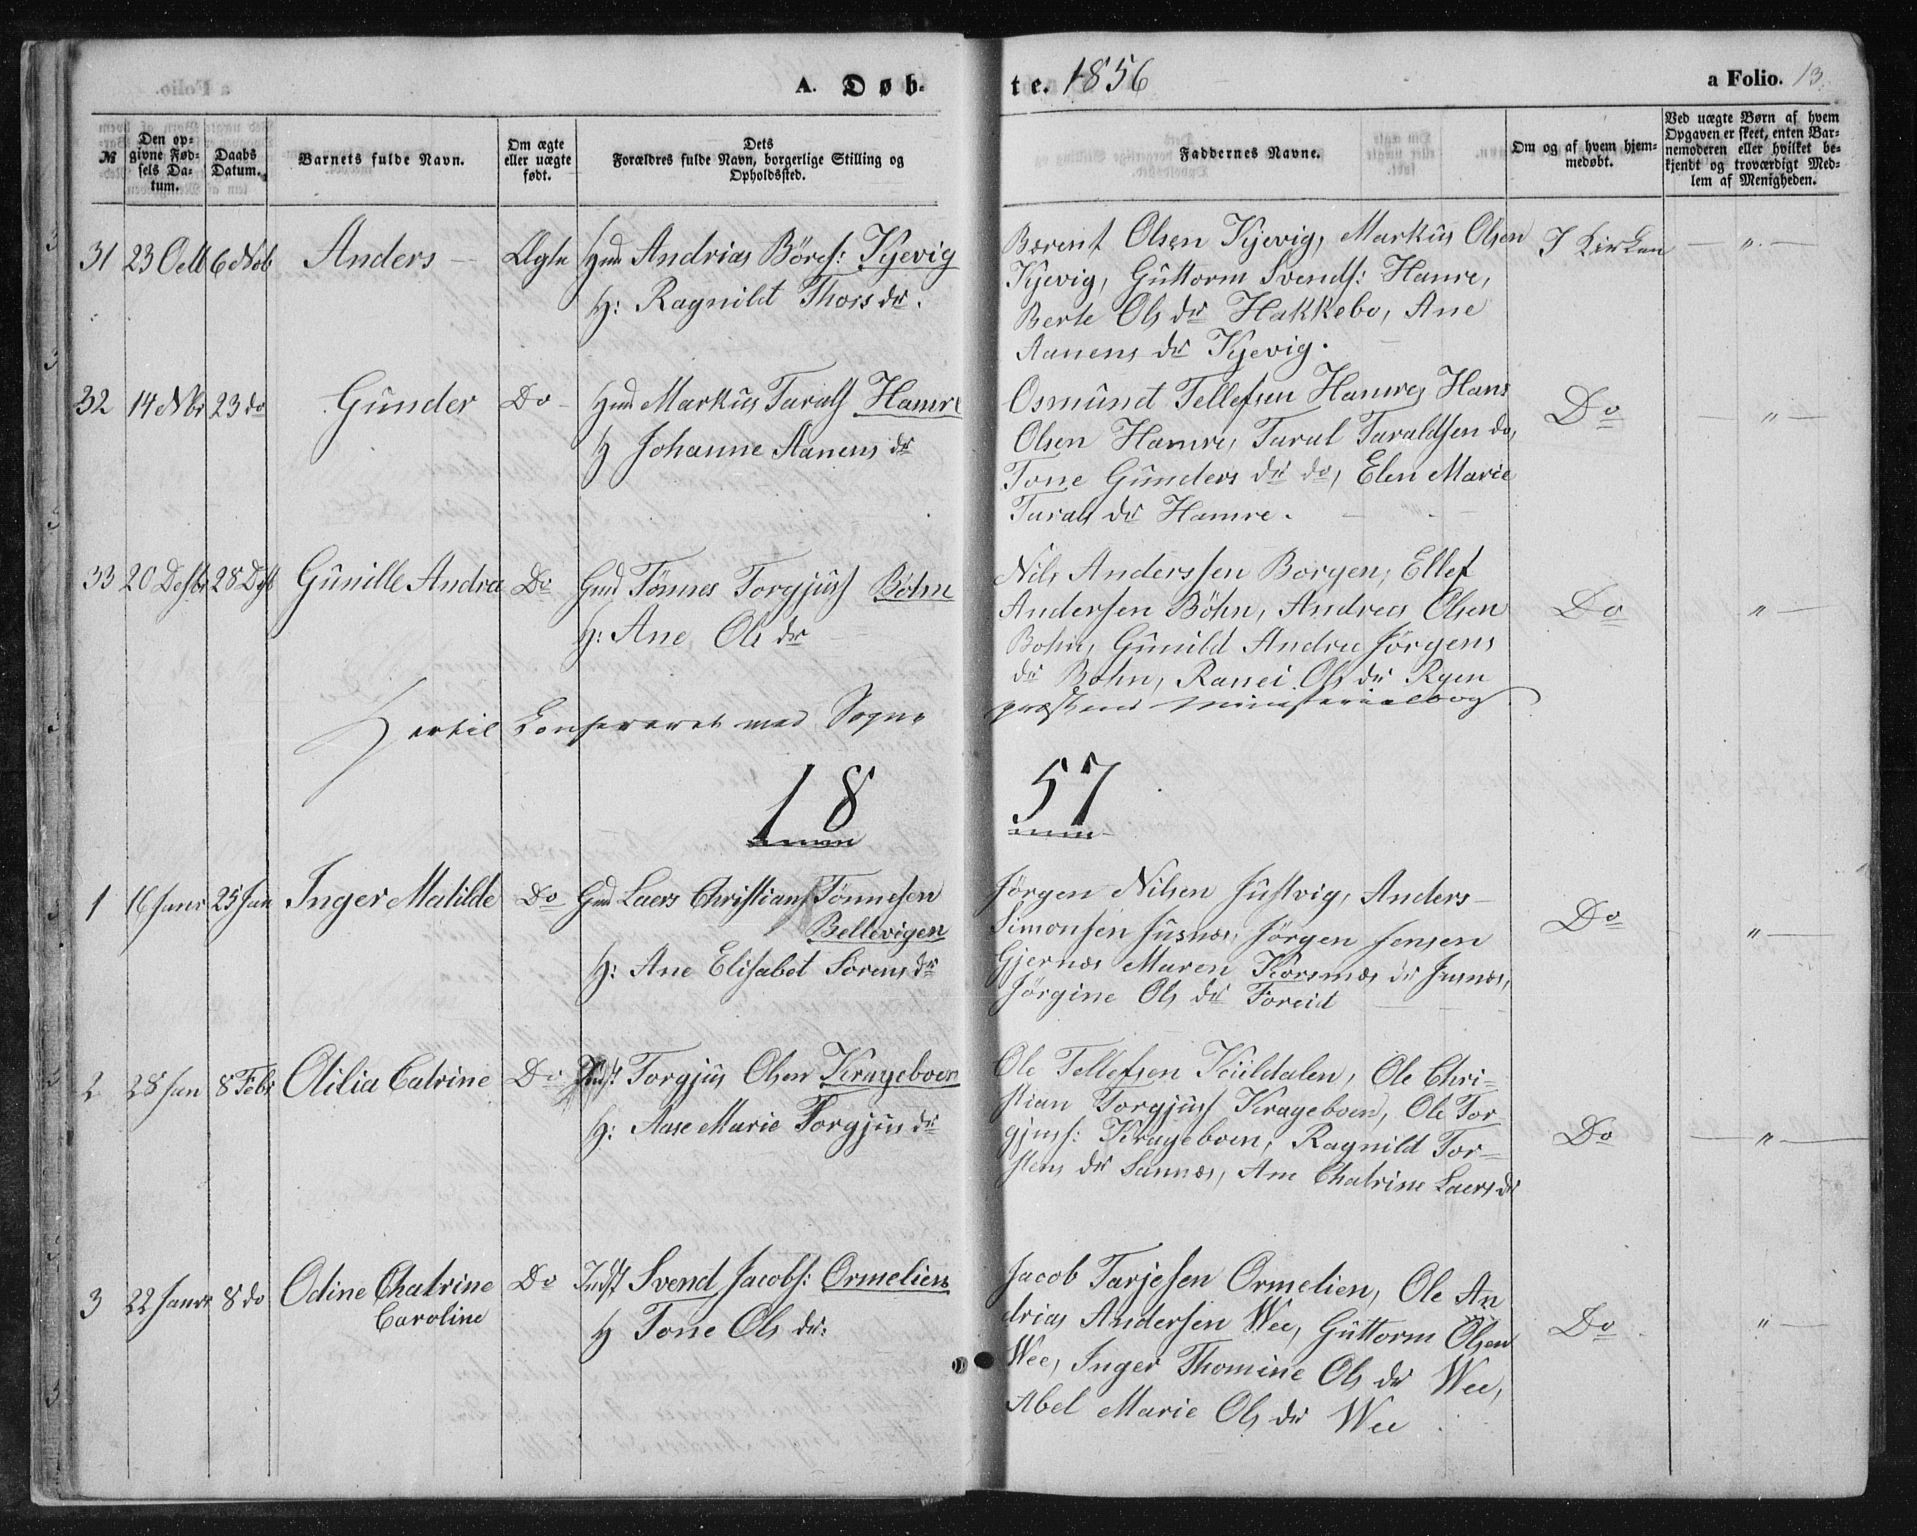 A. Døb-
te. 1856
a Folio. 13.
№
Den op-
givne Fød-
sels Da-
tum.
Daabs
Datum.
Barnets fulde Navn.
Om ægte
eller uægte
født.
Dets
Forældres fulde Navn, borgerlige Stilling og
Opholdssted.
Faddernes Navne.
Om og af hvem hjem-
medøbt.
Ved uægte Børn af hvem
Opgaven er skeet, enten Bar-
nemoderen eller hvilket be-
kjendt og troværdigt Med-
lem af Menigheden.
31 23 Octb 6 Nob Anders Ægte Andrias Böres: Kjevig
H: Ragnild Thors dr.
Berent Olsen Kjevig, Markus Olsen
Kjevig, Guttorm Svends: Hamre,
Berte Ols dr Hakkebo, Ane
Aanens dr Kjevig.
I Kirken — „ —
32 14 Nbr 23 do Gunder Do Markus Tarals Hamre
H Johanne Aanens dr
Osmund Tellefsen Hamre, Hans
Olsen Hamre, Taral Taraldsen do,
Tone Gunders dr do, Elen Marie
Tarals dr Hamre.
Do — „ —
33 20 Desbr 28 Dsb Gunille Andrea Do Gmd Tönnes Torgjuss Bøhn
H: Ane Ols dr
Nils Anderssen Borgen, Ellef
Andersen Böhn, Andreas Olsen
Bohn, Gunild Andrea Jörgens
dr Bohn, Rannei Ols dr Ryen
Do „ —
Hertil Confereret med Sogne
præstens Ministerialbog
18
57
1 16 Janr 25 Jan Inger Matilde Do Gmd Laers Christians Tönnesen
Bellevigen
H: Ane Elisabet Sorens dr
Jørgen Nilsen Justvig, Anders
Simonsen Jusnes, Jörgen Jensen
Gjernes Maren Korsmæs dr Jusnes,
Jørgine Ols dr Foreid
Do „ —
2 28 Jan 8 Febr Otilia Catrine Do Indst Torgjus Olsen Krageboen
H: Aase Marie Torgjus dr
Ole Tellefsen Kuldalen, Ole Chri-
stian Torgjuss Krageboen, Ole Tor-
gjuss: Krageboen, Ragnild Tor-
stens dr Sannes, Ane Chatrine Laers dr
Do — „ —
3 22 Janr 8 do Odine Chatrine
Caroline
Do Indst Svend Jacobs: Ormelien
H Tone Ols dr:
Jacob Tarjesen Ormelien, Ole An
drias Andersen Wee, Guttorm Olsen
Wee, Inger Thomine Ols dr Wee,
Abel Marie Ols dr Wee
Do „ —